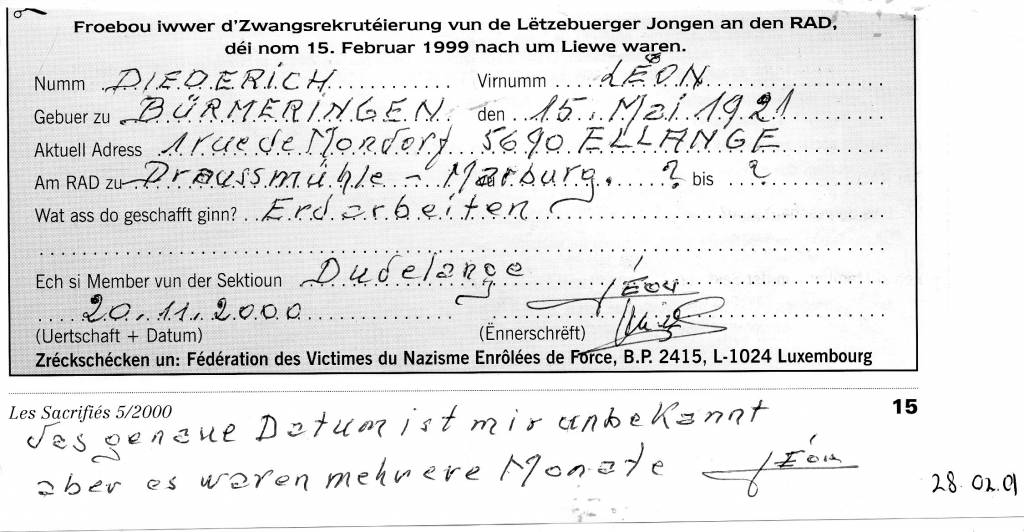 Froebou iwwer d'Zwangsrekrutéierung vun de Lëtzebuerger Jongen an den RAD,
déi nom 15. Februar 1999 nach um Liewe waren.
Numm DIEDERICH Virnumm LÉON
Gebuer zu BÜRMERINGEN den 15. Mai 1921
Aktuell Adress 1 rue de Mondorf 5690 ELLANGE
Am RAD zu Draussmühle - Marburg. ? bis ?
Wat ass do geschafft ginn? Erdarbeiten
Ech si Member vun der Sektioun Dudelange
20.11.2000 Léon
(Uertschaft + Datum) (Ënnerschrëft)
Zréckschécken un: Fédération des Victimes du Nazisme Enrôlées de Force, B.P. 2415, L-1024 Luxembourg
Les Sacrifiés 5/2000 15
das genaue Datum ist mir unbekannt
aber es waren mehrere Monate Léon
28.02.01